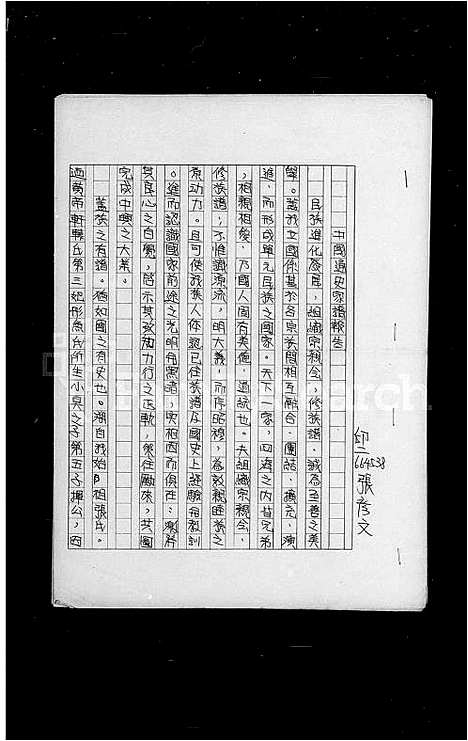 印二
664538
張彥文
中國通史家譜報告
民族進化發展,組織宗親会,修族譜,誠為至善之美
舉。蓋我立國係基於各宗族間相互融合、團結、擴充、演
進,而形成單元民族之國家。天下一家,四海之内皆兄弟
;相親相愛,乃國人固有美德,道統也。夫組織宗親会,
修族譜;不惟識源流,明大義,而序昭穆,為敦親睦族之
原動力。且可使我族人你認已往族譜及國史上經驗和教訓
。進而認識國家前途之光明与黑暗,與相因而俱在;激發
其良心之自覺,啓示其致力行之正軌,策往勵來,共圖
完成中興之大業。
蓋族之有譜。猶如國之有史也。溯自我始祖張氏。
迺黄帝軒轅氏第三妃彤魚氏所生小昊之子第五子揮公,因